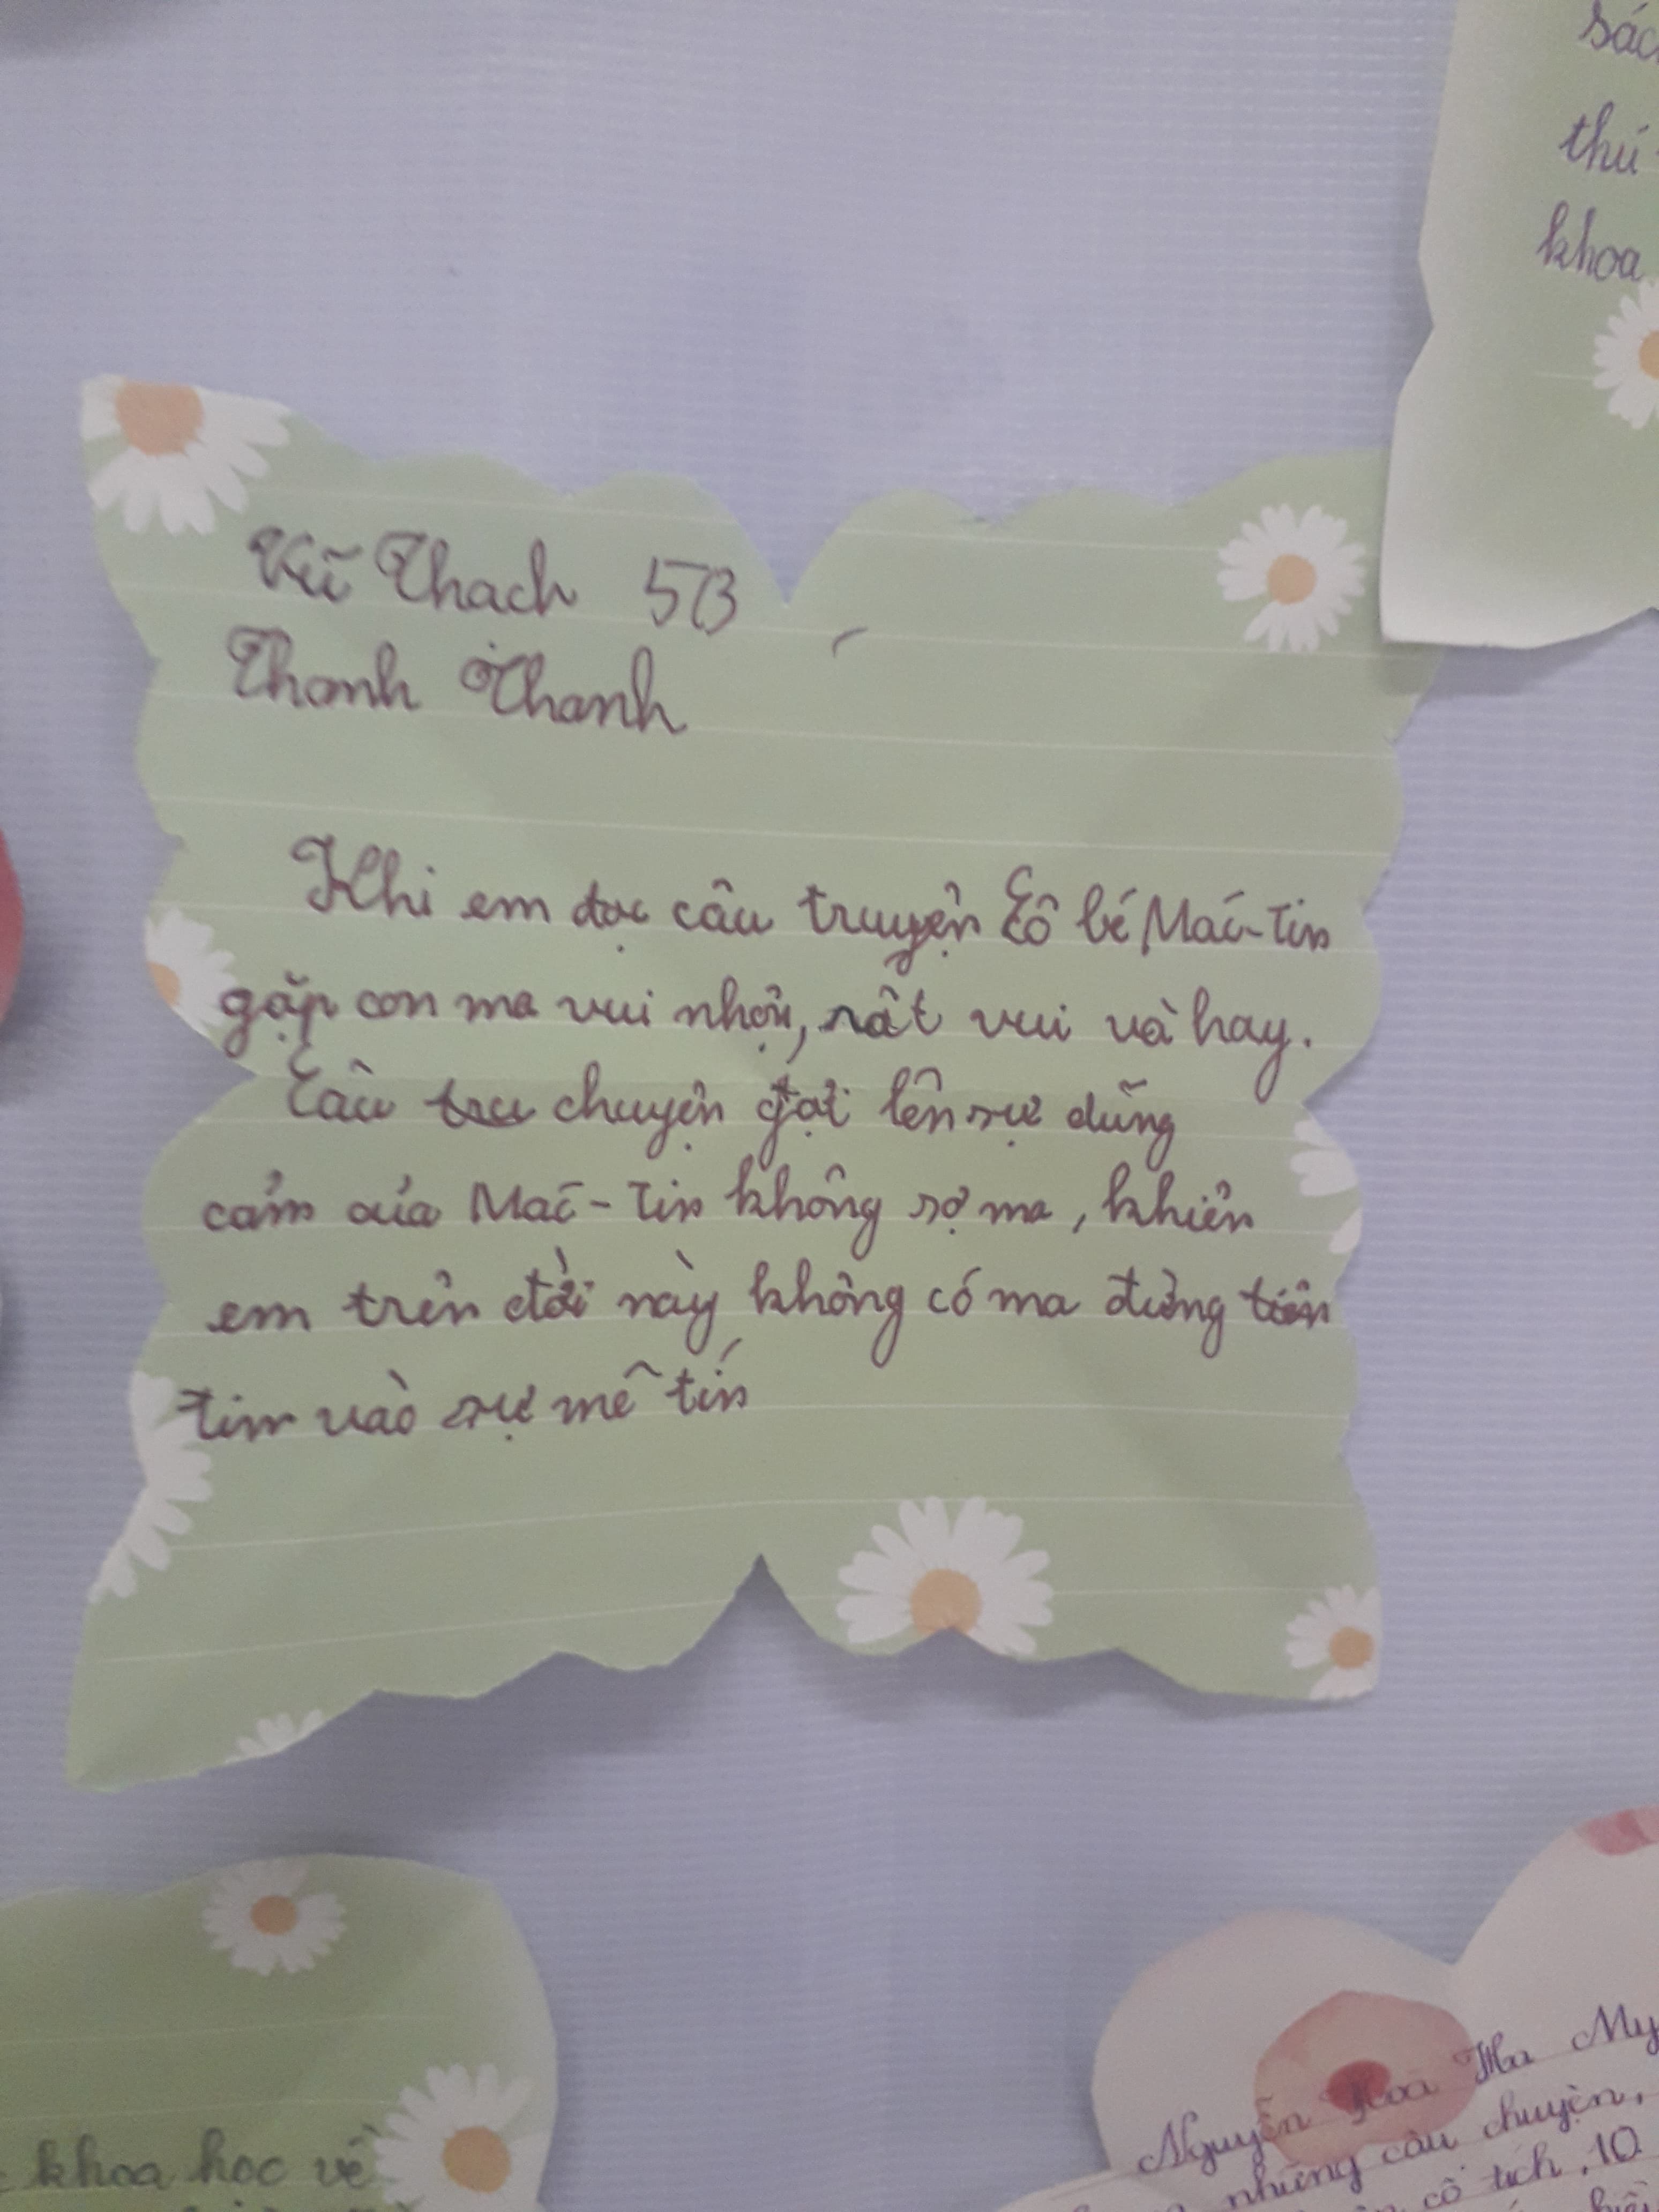 sác
thú
khoa
Vũ Thach 5B
Thanh Thanh
Khi em đọc câu truyện Cô bé Mác-Tin
gặp con ma vui nhộn, rất vui và hay.
Câu tru chuyện gợi lên sự dũng
cảm của Mác-Tin không sợ ma, khiên
em trên đời này không có ma đừng tiên
tin vào sự mê tín
khoa học về
Nguyễn Hoà My
những câu chuyện,
cổ tích, 10